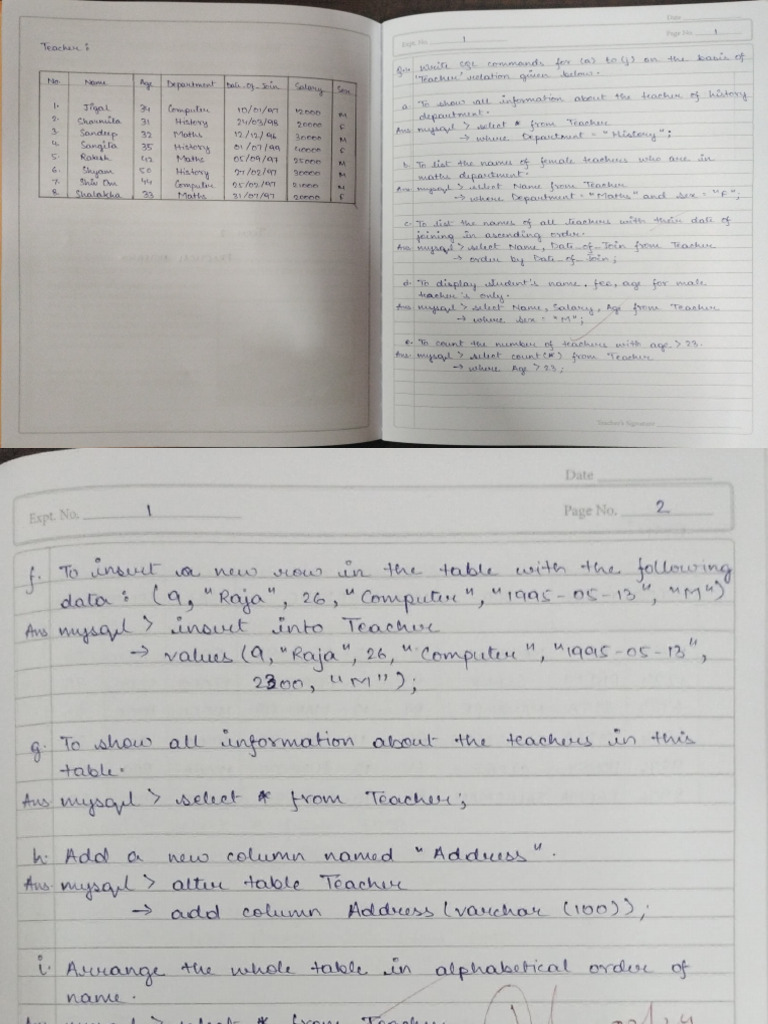 Teacher :
No. Name Age Department Date-of-Join Salary Sex
1. Jigal 34 Computer 10/01/97 12000 M
2. Sharmila 31 History 24/03/98 20000 F
3. Sandeep 32 Maths 12/12/96 30000 M
4. Sangita 35 History 01/07/99 40000 F
5. Rakesh 42 Maths 05/09/97 25000 M
6. Shyam 50 History 27/02/97 30000 M
7. Shiv Om 44 Computer 05/02/97 21000 M
8. Shalakha 33 Maths 31/07/97 20000 F
Date
Expt. No. 1 Page No. 1
Write SQL commands for (a) to (j) on the basis of
'Teacher' relation given below.
a. To show all information about the teacher of history
department.
Ans mysql > select * from Teacher
→ where Department = "History";
b. To list the names of female teachers who are in
maths department.
Ans mysql > select Name from Teacher
→ where Department = "Maths" and sex = "F";
c. To list the names of all teachers with their date of
joining in ascending order.
Ans mysql > select Name, Date_of_Join from Teacher
→ order by Date_of_Join;
d. To display student's name, fee, age for male
teacher's only.
Ans mysql > select Name, Salary, Age from Teacher
→ where sex = "M";
e. To count the number of teachers with age > 23.
Ans mysql > select count(*) from Teacher
→ where Age > 23;
Teacher's Signature
Date
Expt. No. 1 Page No. 2
f. To insert a new row in the table with the following
data : (9, "Raja", 26, "Computer", "1995-05-13", "M")
Ans mysql > insert into Teacher
→ values (9, "Raja", 26, "Computer", "1995-05-13",
2300, "M");
g. To show all information about the teachers in this
table.
Ans mysql > select * from Teacher;
h. Add a new column named "Address".
Ans mysql > alter table Teacher
→ add column Address (varchar (100));
i. Arrange the whole table in alphabetical order of
name.
Ans mysql > select * from Teacher